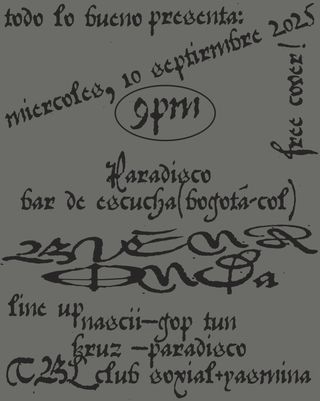 todo lo bueno presenta:
miercoles, 10 septirmbre 2025
free cover!
9pm
Paradisco
bar de escucha(bogotá-col)
BUENA
ONDa
line up
nascii—gop tun
kruz —paradisco
TBL club soxial+yasmina